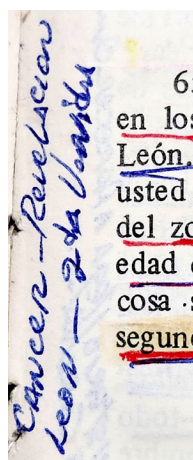 Cancer - Revelacion
Leon - 2da Venida
6
en los
León.
usted
del zo
edad
cosa
segun